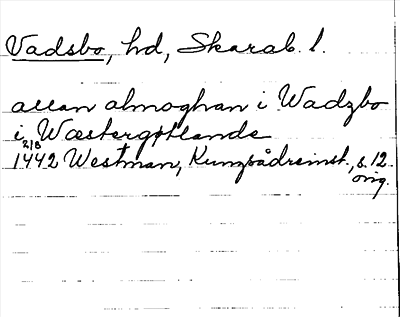 Vadsbo, hd, Skarab. l.
allan almoghan i Wadzbo
i Wæstergøtlande
21/8
1442 Westman, Kungaådreinst., s. 12.
orig.